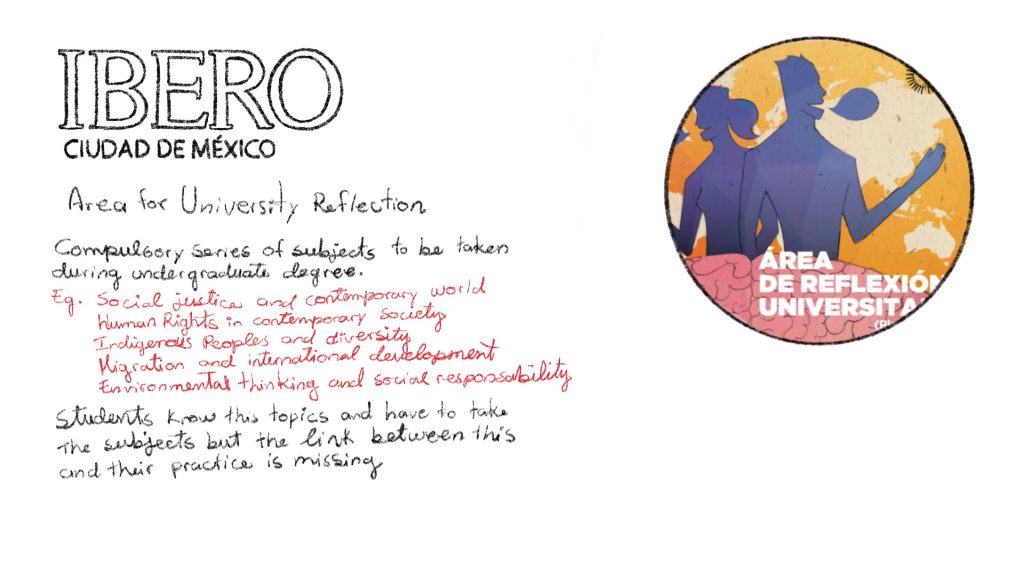 IBERO
CIUDAD DE MÉXICO
Area for University Reflection
Compulsory series of subjects to be taken
during undergraduate degree.
Eg. Social justice and contemporary world
Human Rights in contemporary Society
Indigenous Peoples and diversity
Migration and international development
Environmental thinking and social responsability
Students know this topics and have to take
the subjects but the link between this
and their practice is missing
ÁREA
DE REFLEXIÓN
UNIVERSITA